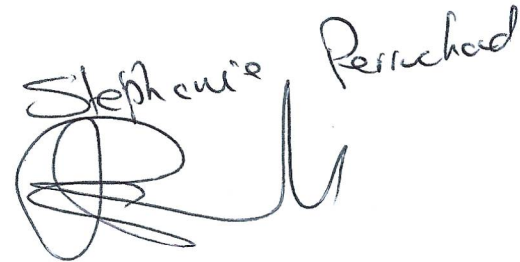 Stephanie Perruchoud